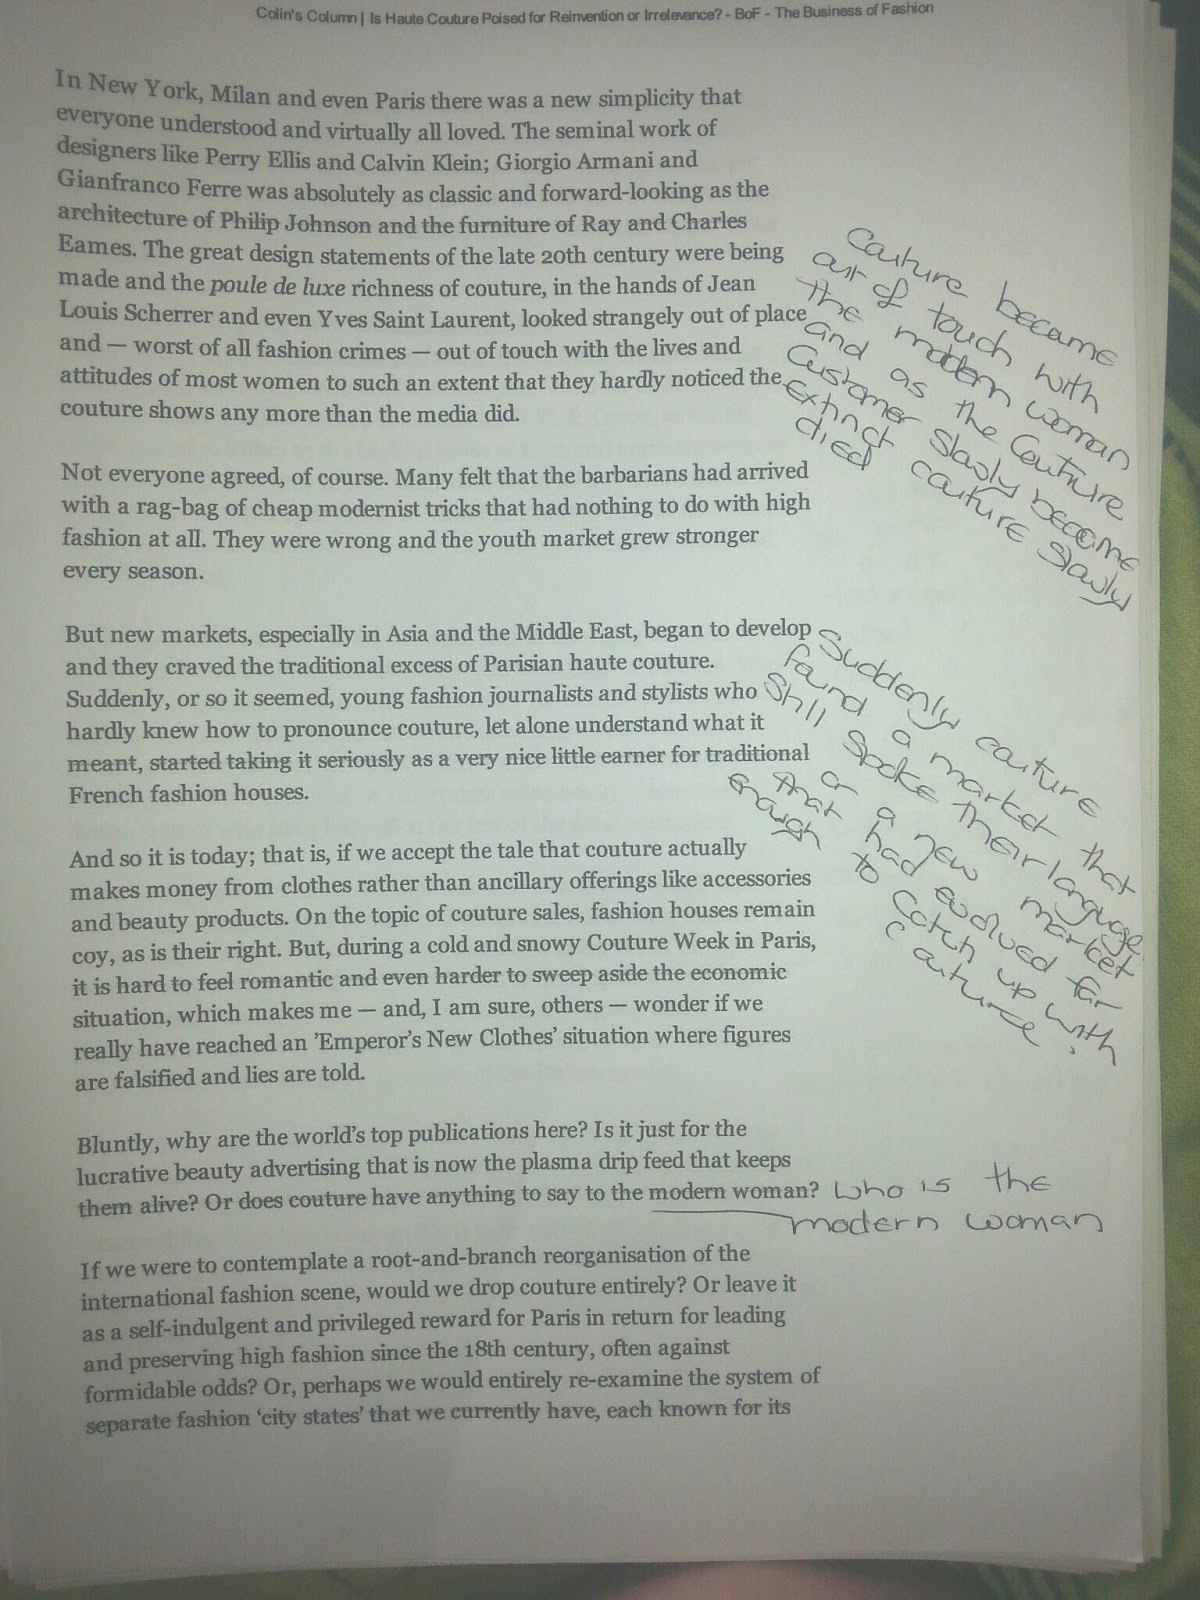 Colin's Column | Is Haute Couture Poised for Reinvention or Irrelevance? - BoF - The Business of Fashion
In New York, Milan and even Paris there was a new simplicity that
everyone understood and virtually all loved. The seminal work of
designers like Perry Ellis and Calvin Klein; Giorgio Armani and
Gianfranco Ferre was absolutely as classic and forward-looking as the
architecture of Philip Johnson and the furniture of Ray and Charles
Eames. The great design statements of the late 20th century were being
made and the poule de luxe richness of couture, in the hands of Jean
Louis Scherrer and even Yves Saint Laurent, looked strangely out of place
and — worst of all fashion crimes — out of touch with the lives and
attitudes of most women to such an extent that they hardly noticed the
couture shows any more than the media did.
Couture became
out of touch with
the modern woman
and as the Couture
Customer slowly became
extinct couture slowly
died
Not everyone agreed, of course. Many felt that the barbarians had arrived
with a rag-bag of cheap modernist tricks that had nothing to do with high
fashion at all. They were wrong and the youth market grew stronger
every season.
But new markets, especially in Asia and the Middle East, began to develop
and they craved the traditional excess of Parisian haute couture.
Suddenly, or so it seemed, young fashion journalists and stylists who
hardly knew how to pronounce couture, let alone understand what it
meant, started taking it seriously as a very nice little earner for traditional
French fashion houses.
Suddenly couture
found a market that
Still spoke their language
or a new market
that had evolved far
enough to catch up with
couture.
And so it is today; that is, if we accept the tale that couture actually
makes money from clothes rather than ancillary offerings like accessories
and beauty products. On the topic of couture sales, fashion houses remain
coy, as is their right. But, during a cold and snowy Couture Week in Paris,
it is hard to feel romantic and even harder to sweep aside the economic
situation, which makes me — and, I am sure, others — wonder if we
really have reached an ’Emperor’s New Clothes’ situation where figures
are falsified and lies are told.
Bluntly, why are the world’s top publications here? Is it just for the
lucrative beauty advertising that is now the plasma drip feed that keeps
them alive? Or does couture have anything to say to the modern woman?
who is the
modern woman
If we were to contemplate a root-and-branch reorganisation of the
international fashion scene, would we drop couture entirely? Or leave it
as a self-indulgent and privileged reward for Paris in return for leading
and preserving high fashion since the 18th century, often against
formidable odds? Or, perhaps we would entirely re-examine the system of
separate fashion ‘city states’ that we currently have, each known for its